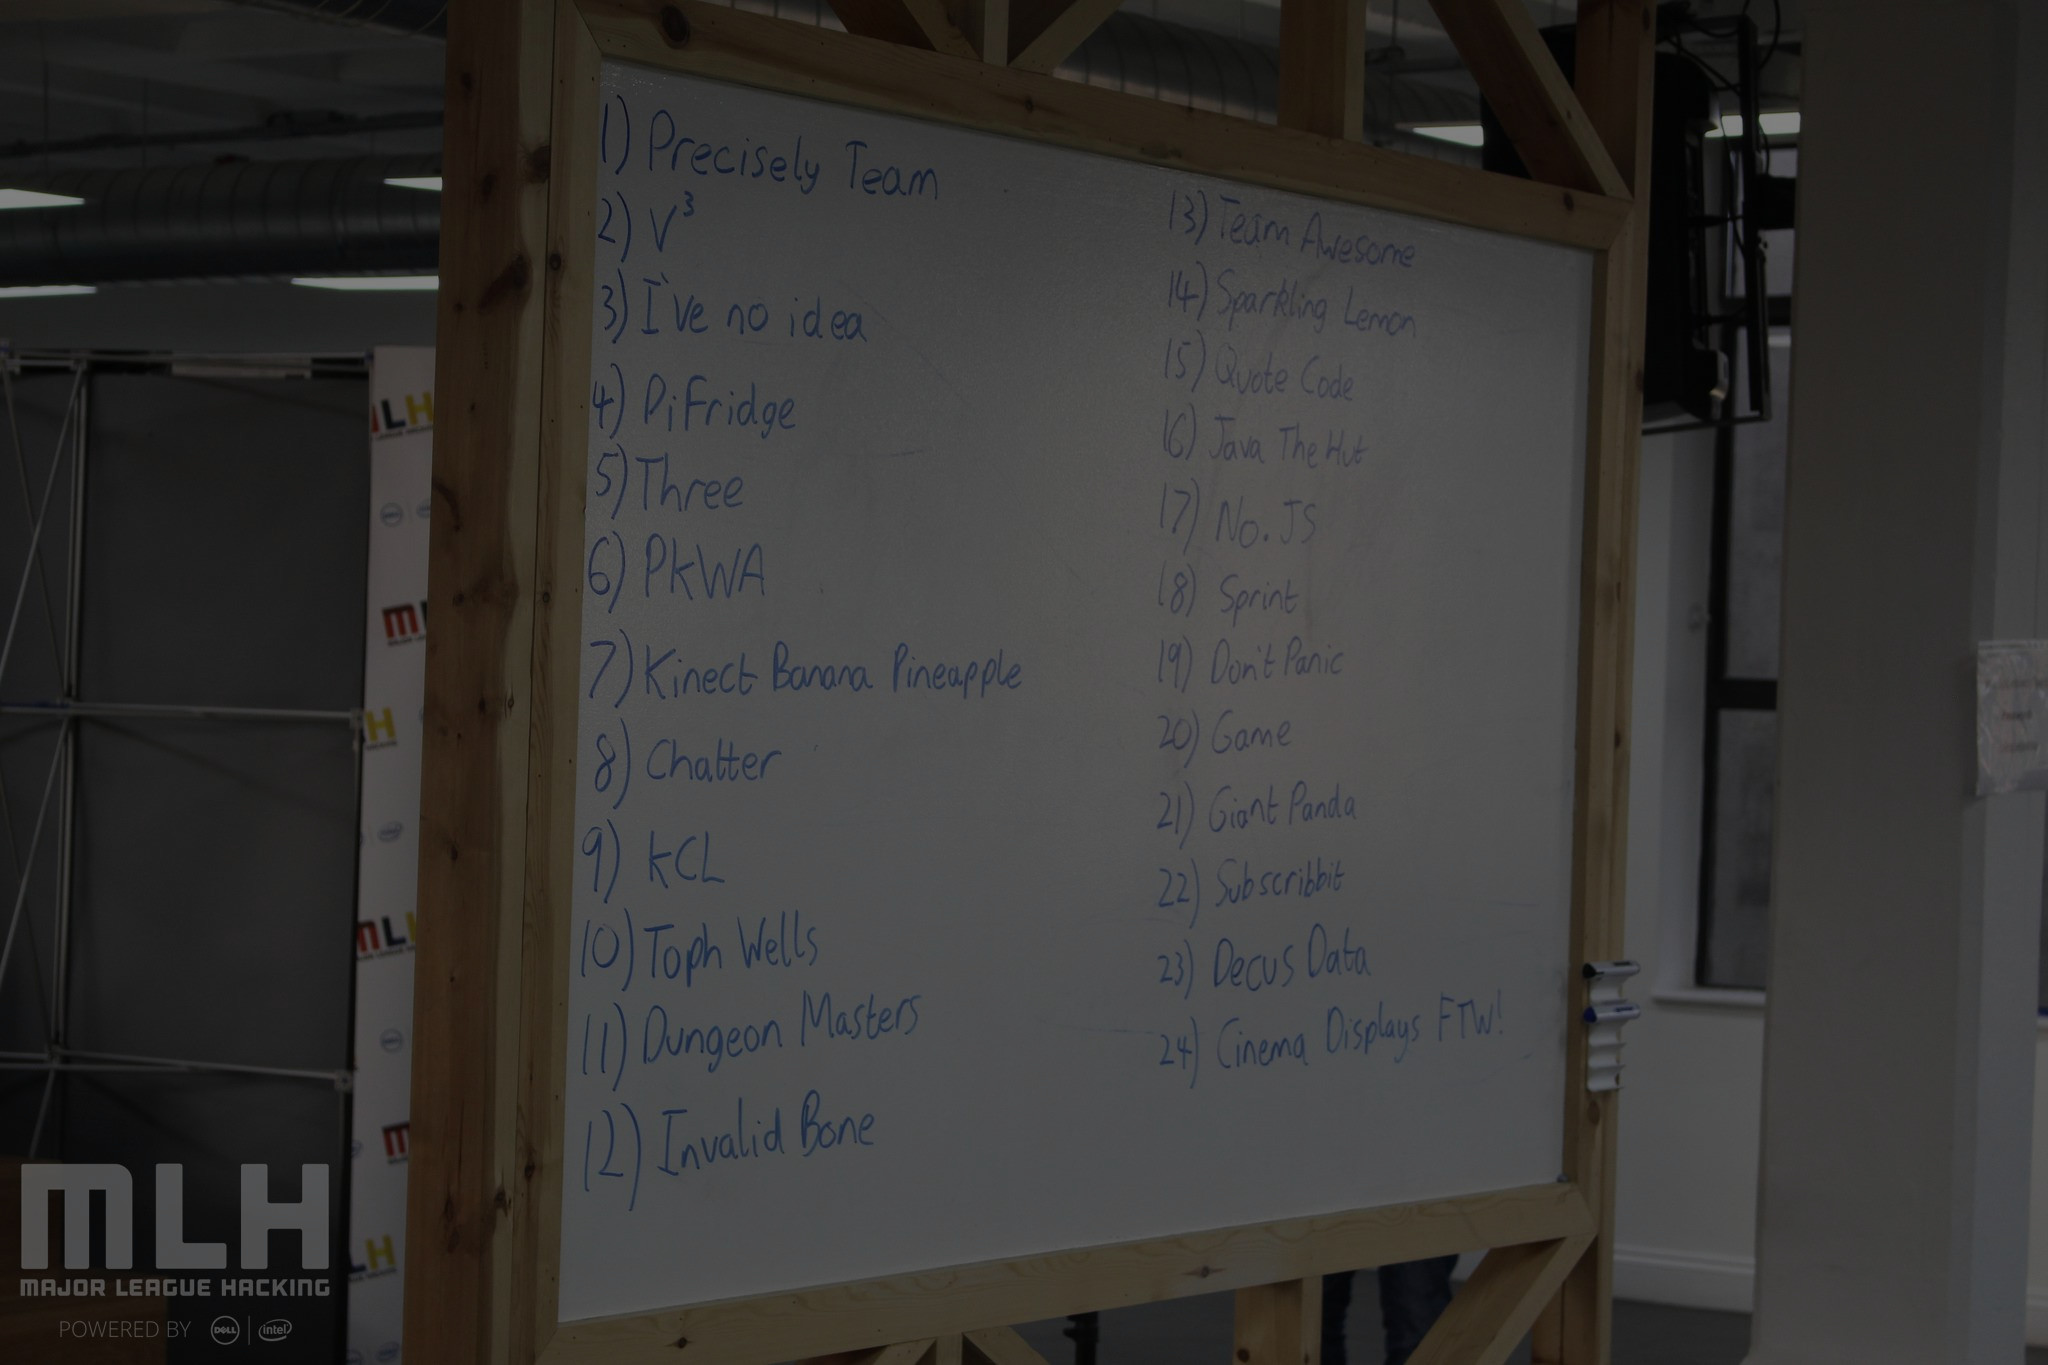 1) Precisely Team
2) V³
3) I've no idea
4) PiFridge
5) Three
6) PKWA
7) Kinect Banana Pineapple
8) Chatter
9) KCL
10) Toph Wells
11) Dungeon Masters
12) Invalid Bone
13) Team Awesome
14) Sparkling Lemon
15) Quote Code
16) Java The Hut
17) No.JS
18) Sprint
19) Don't Panic
20) Game
21) Giant Panda
22) Subscribbit
23) Decus Data
24) Cinema Displays FTW!
MLH
MAJOR LEAGUE HACKING
POWERED BY DELL intel